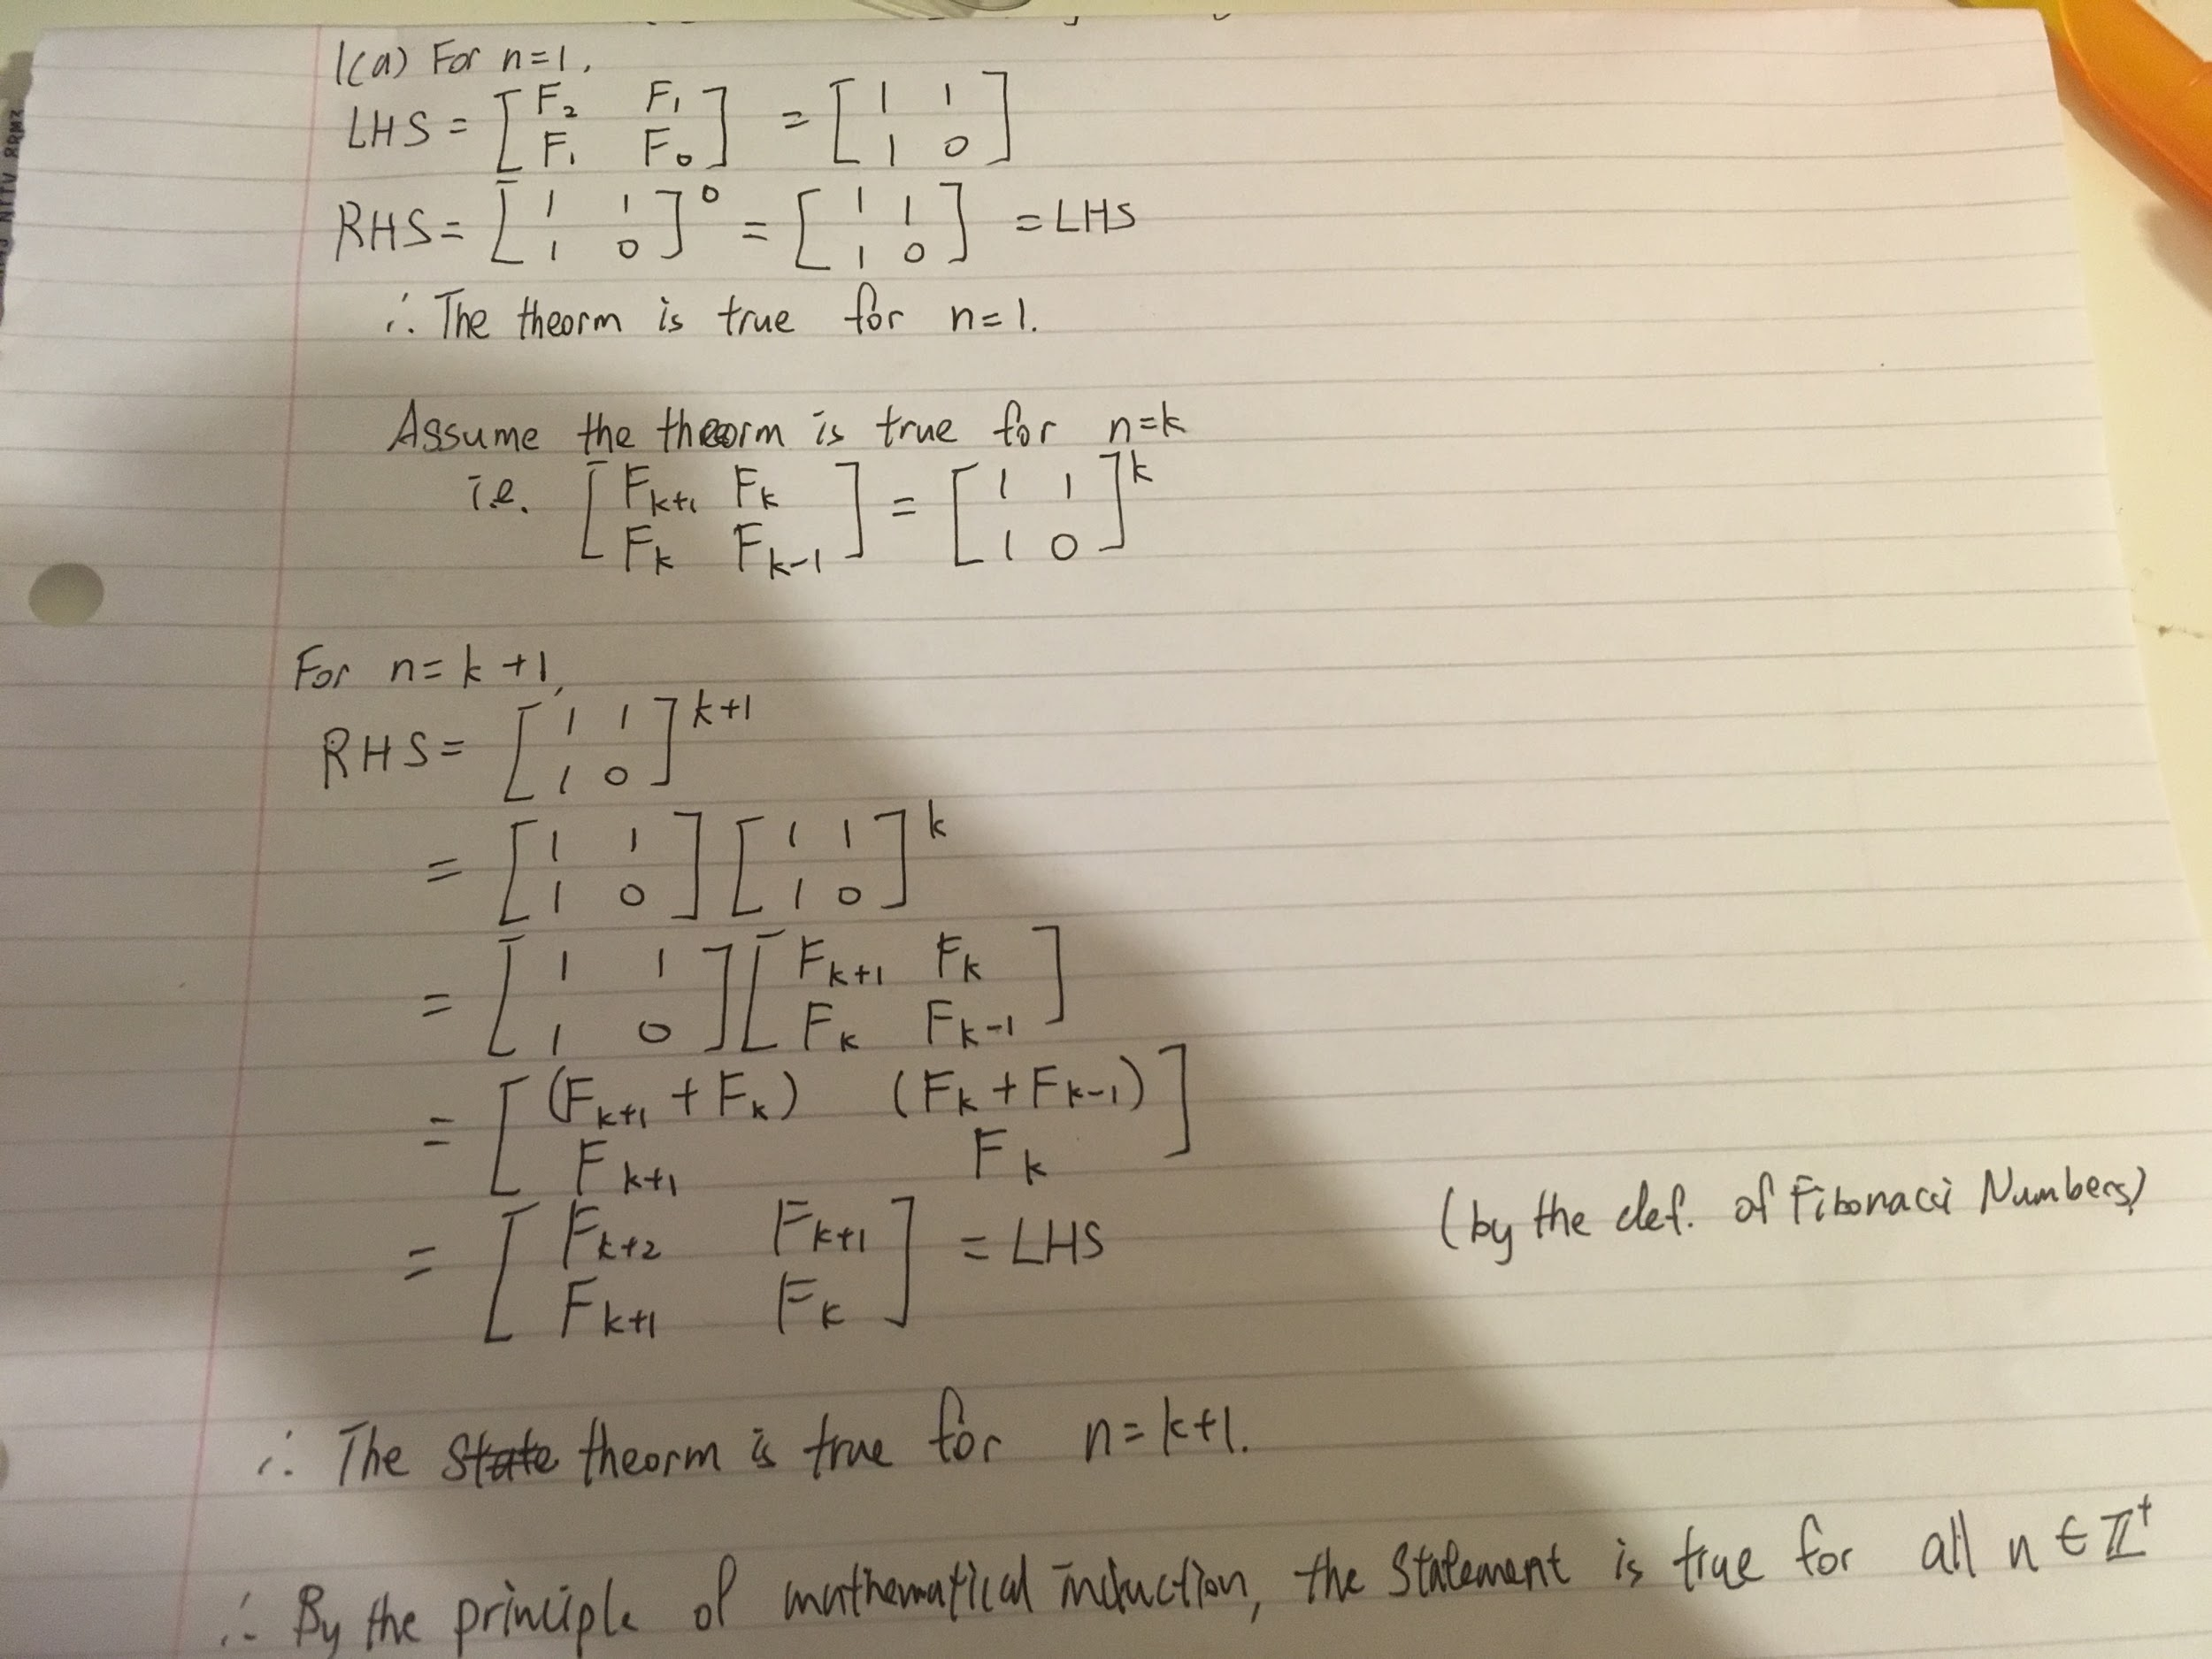 1(a) For n=1,
LHS = [F₂ F₁; F₁ F₀] = [1 1; 1 0]
RHS = [1 1; 1 0]⁰ = [1 1; 1 0] = LHS
∴ The theorm is true for n=1.
Assume the theorm is true for n=k
i.e. [Fₖ₊₁ Fₖ; Fₖ Fₖ₋₁] = [1 1; 1 0]ᵏ
For n=k+1,
RHS = [1 1; 1 0]ᵏ⁺¹
= [1 1; 1 0][1 1; 1 0]ᵏ
= [1 1; 1 0][Fₖ₊₁ Fₖ; Fₖ Fₖ₋₁]
= [(Fₖ₊₁ + Fₖ) (Fₖ + Fₖ₋₁); Fₖ₊₁ Fₖ]
= [Fₖ₊₂ Fₖ₊₁; Fₖ₊₁ Fₖ] = LHS (by the def. of Fibonacci Numbers)
∴ The State theorm is true for n=k+1.
∴ By the principle of mathematical induction, the statement is true for all n ∈ ℤ⁺